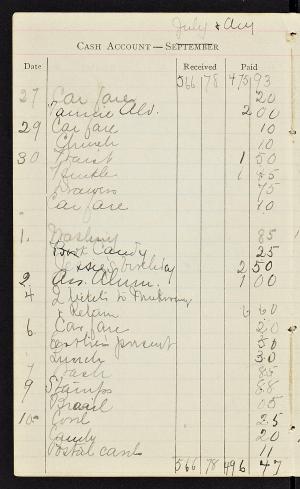 July & Aug
CASH ACCOUNT—SEPTEMBER
Date Received Paid
566 78 475 93
27 Car fare 20
Fannie Ald. 2 00
29 Car fare 10
Church 10
30 Waist 1 50
1 75
Drawers 75
Car fare 10
1. Washing 85
Candy 25
Jessie's birthday 2 50
2 Ass. Alum. 1 00
4 2 tickets to
& Return 6 60
6 Car fare 20
present 50
Lunch 30
7 Wash 85
9 Stamps 88
05
10 Cord 25
Candy 20
Postal cards 11
566 78 496 47